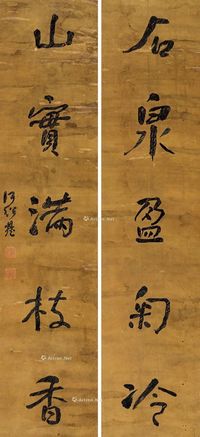 石泉盈匊冷
山實滿枝香
何紹基